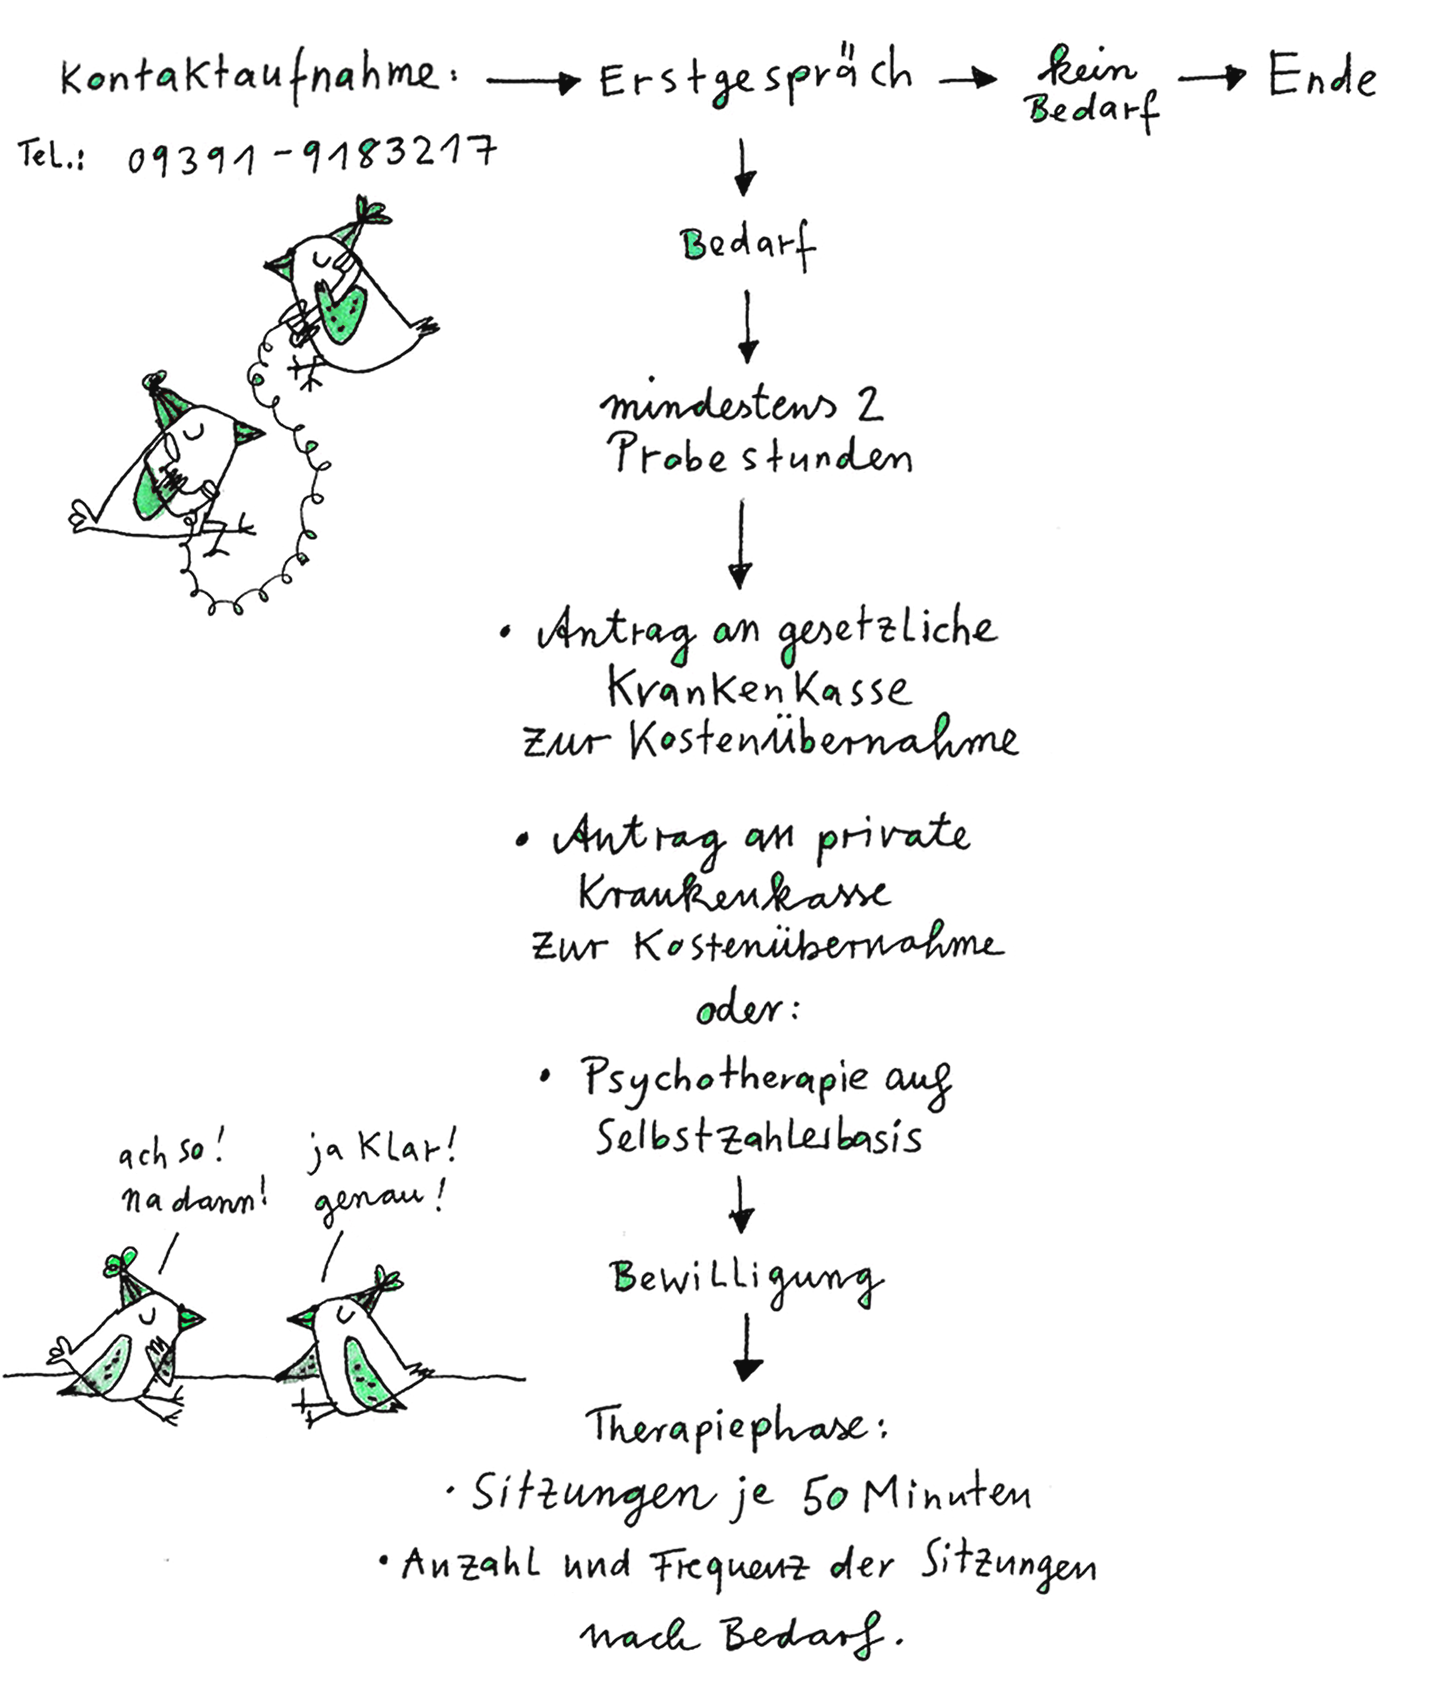 Kontaktaufnahme: → Erstgespräch → kein Bedarf → Ende
Tel.: 09391-9183217
Bedarf
mindestens 2
Probestunden
• Antrag an gesetzliche
Krankenkasse
zur Kostenübernahme
• Antrag an private
Krankenkasse
zur Kostenübernahme
oder:
• Psychotherapie auf
Selbstzahlerbasis
ach so!
na dann!
ja klar!
genau!
Bewilligung
Therapiephase:
• Sitzungen je 50 Minuten
• Anzahl und Frequenz der Sitzungen
nach Bedarf.